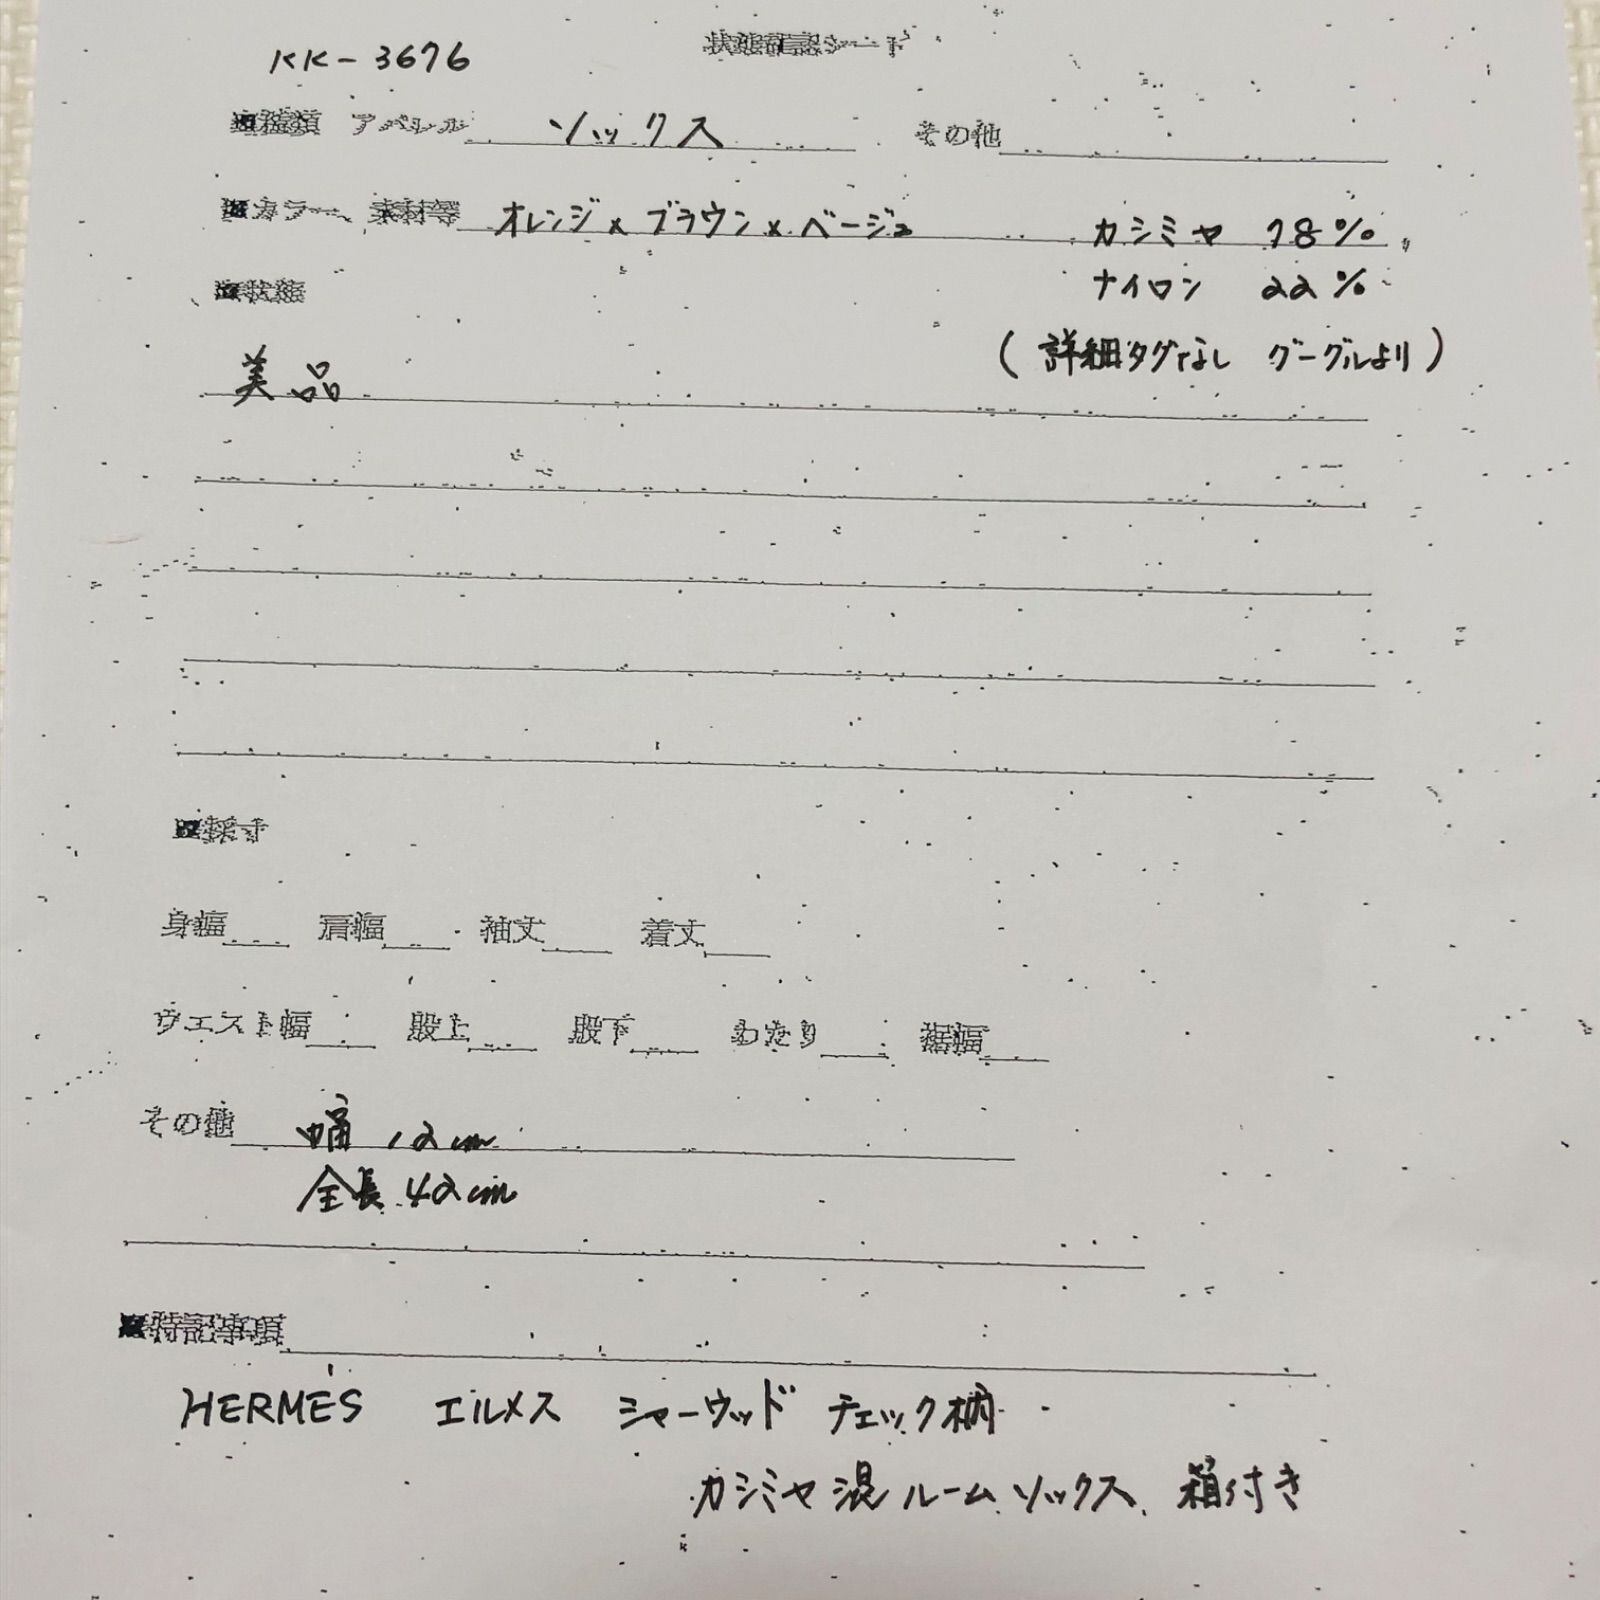 状態確認シート
KK-3676
■種類 アパレル ソックス その他
■カラー、素材等 オレンジ×ブラウン×ベージュ カシミヤ 78%
ナイロン 22%
■状態
(詳細タグなし グーグルより)
美品
■採寸
身幅 肩幅 袖丈 着丈
ウエスト幅 股上 股下 わたり 裾幅
その他 幅 12cm
全長 42cm
■特記事項
HERMES エルメス シャーウッド チェック柄
カシミヤ混ルームソックス 箱付き